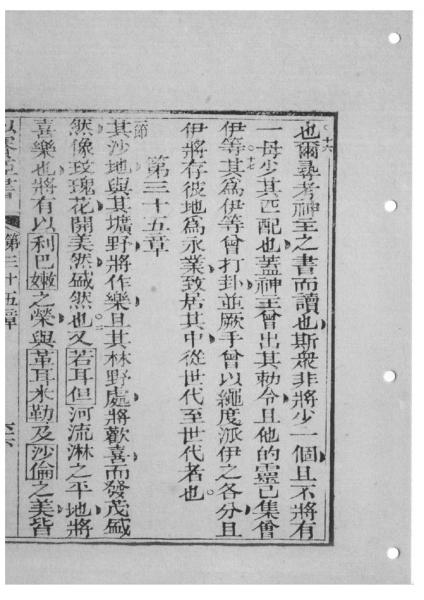 也爾尋考神主之書而讀也斯衆非將少一個且不將有
一毋少其匹配也蓋神主曾出其勅令且他的靈已集會
伊等其爲伊等曾打卦並厥手曾以繩度派伊之各分且
伊將存彼地爲永業致居其中從世代至世代者也
第三十五章
其沙地與其壙野將作樂且其林野處將歡喜而發茂盛
然像玫瑰花開美然盛然也又若耳但河流淋之平地將
喜樂也將有以利巴嫩之榮與革耳米勒及沙倫之美皆
第三十五章